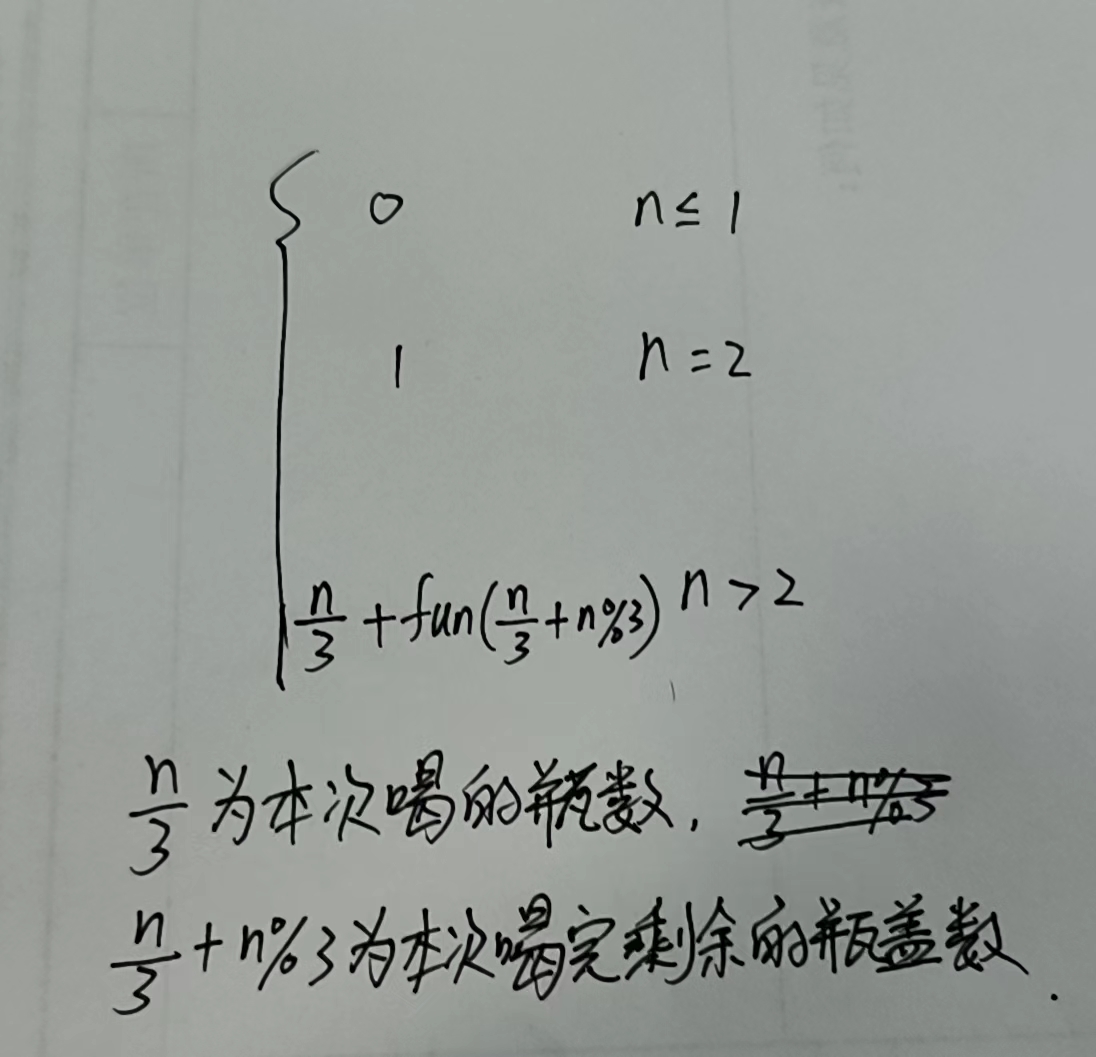 0 n ≤ 1
1 n = 2
n/3 + fun(n/3 + n%3) n > 2
n/3 为本次喝的瓶数, n/3 + n%3
n/3 + n%3 为本次喝完剩余的瓶盖数.